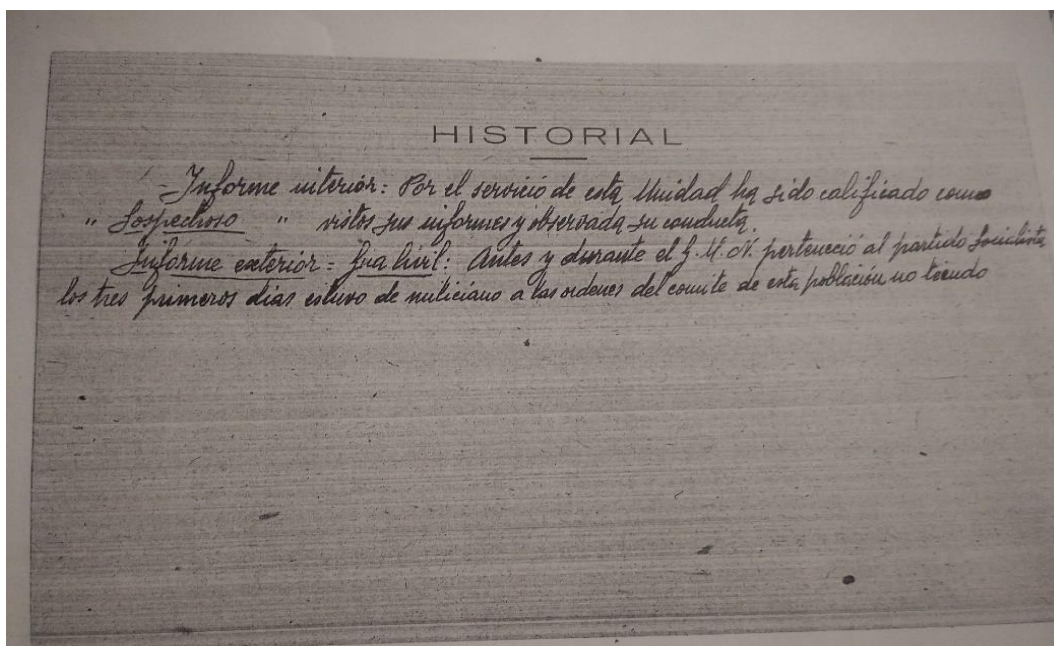 HISTORIAL
- Informe interior: Por el servicio de esta Unidad ha sido calificado como
" Sospechoso " vistos sus informes y observada su conducta.
Informe exterior = Gua Civil: Antes y durante el G. M. N. perteneció al partido Socialista,
los tres primeros dias estuvo de miliciano a las ordenes del comite de esta población no tiendo